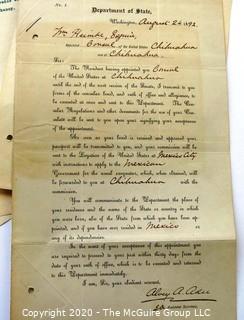 No. 1.
Department of State,
Washington, August 24, 1892.
Wm Heimke, Esquire,
Appointed Consul of the United States Chihuahua
at Chihuahua.
Sir:
The President having appointed you Consul
of the United States at Chihuahua
until the end of the next session of the Senate, I transmit to you
forms of the consular bond, and oath of office and allegiance, to
be executed at once and sent to the Department. The Con-
sular Regulations and other documents for the use of your office
will be sent to you upon your signifying your acceptance
of the appointment.
When your bond is received and approved, your
passport will be transmitted to you, and your commission will
be sent to the Legation of the United States at Mexico City
with instructions to apply to the Mexican
Government for the usual exequatur, which, when obtained, will
be forwarded to you at Chihuahua with the
commission.
You will communicate to the Department the place of
your residence and the name of the State or country in which
you were born, also of the State from which you have been ap-
pointed, and if you have ever resided in Mexico or
any of its dependencies.
In the event of your acceptance of this appointment you
are required to proceed to your post within thirty days from the
date of your oath of office, which is to be executed and returned
to this Department immediately.
I am, Sir, your obedient servant,
Alvey A. Adee
Assistant Secretary.
Copyright 2020 - The McGuire Group LLC